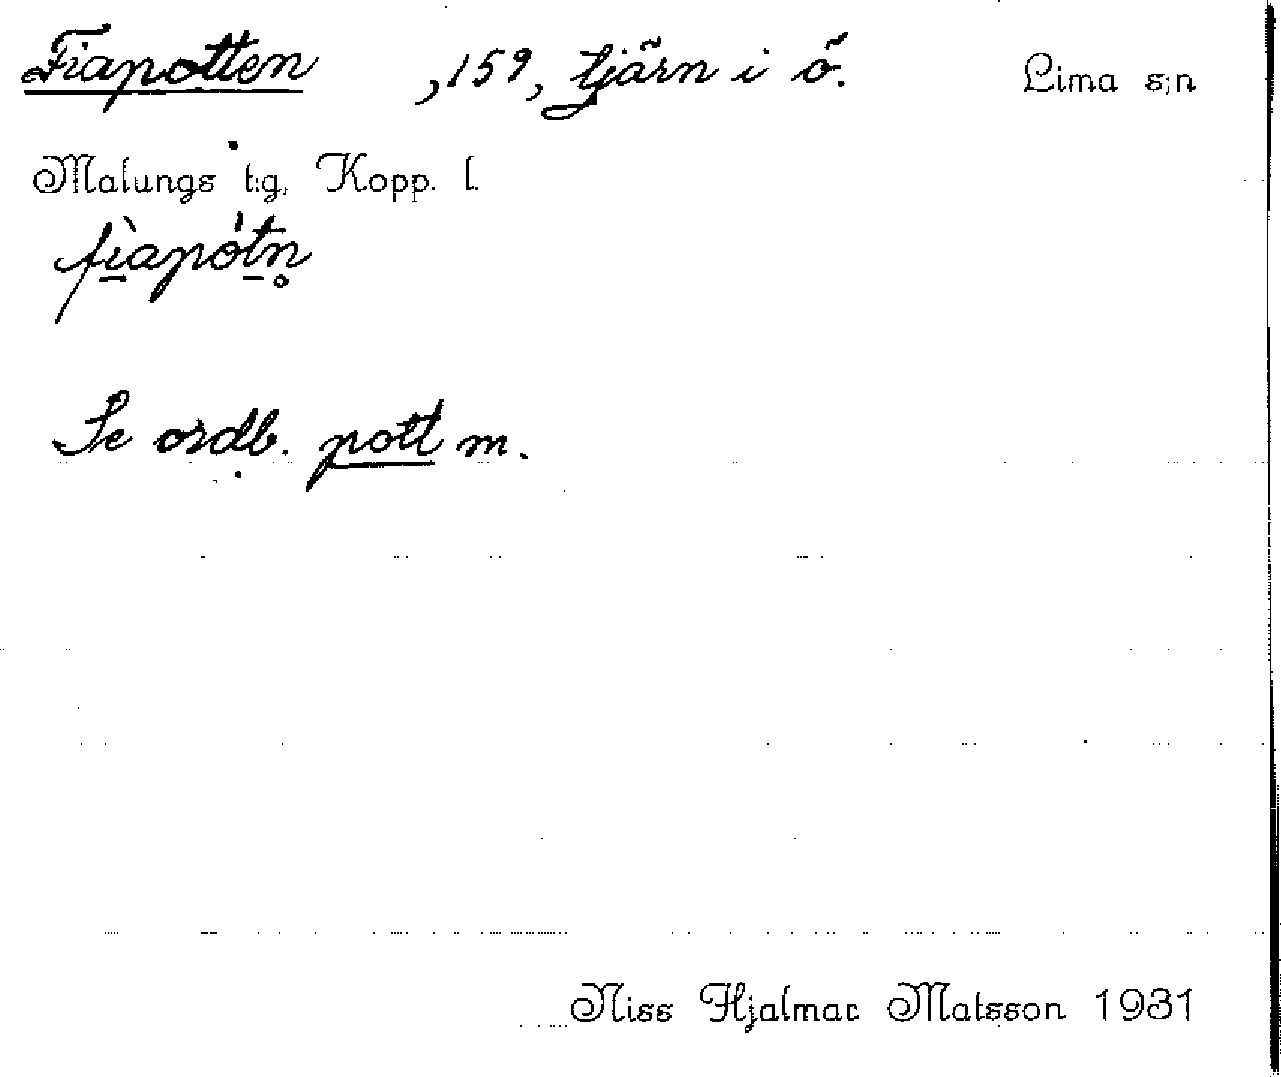 Fiapotten ,159, tjärn i ö. Lima s;n
Malungs t:g, Kopp. l.
fìapótn̥
Se ordb. pott m.
Niss Hjalmar Matsson 1931